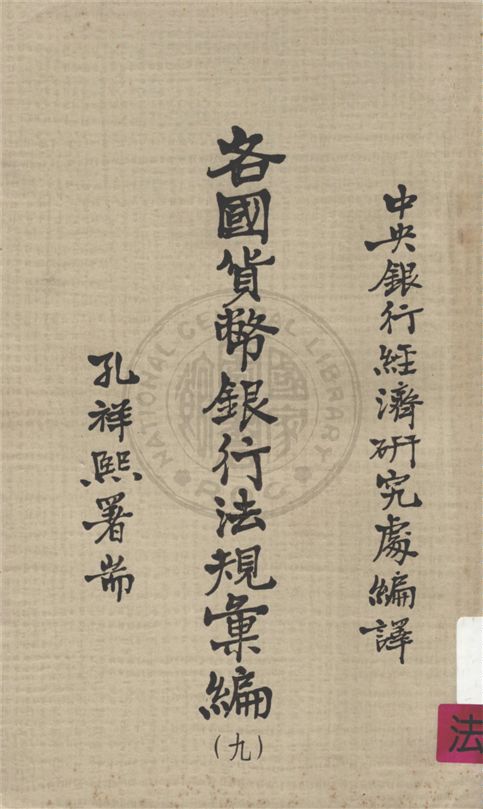 中央銀行經濟研究處編譯
各國貨幣銀行法規彙編
(九)
孔祥熙署耑
NATIONAL CENTRAL LIBRARY
法